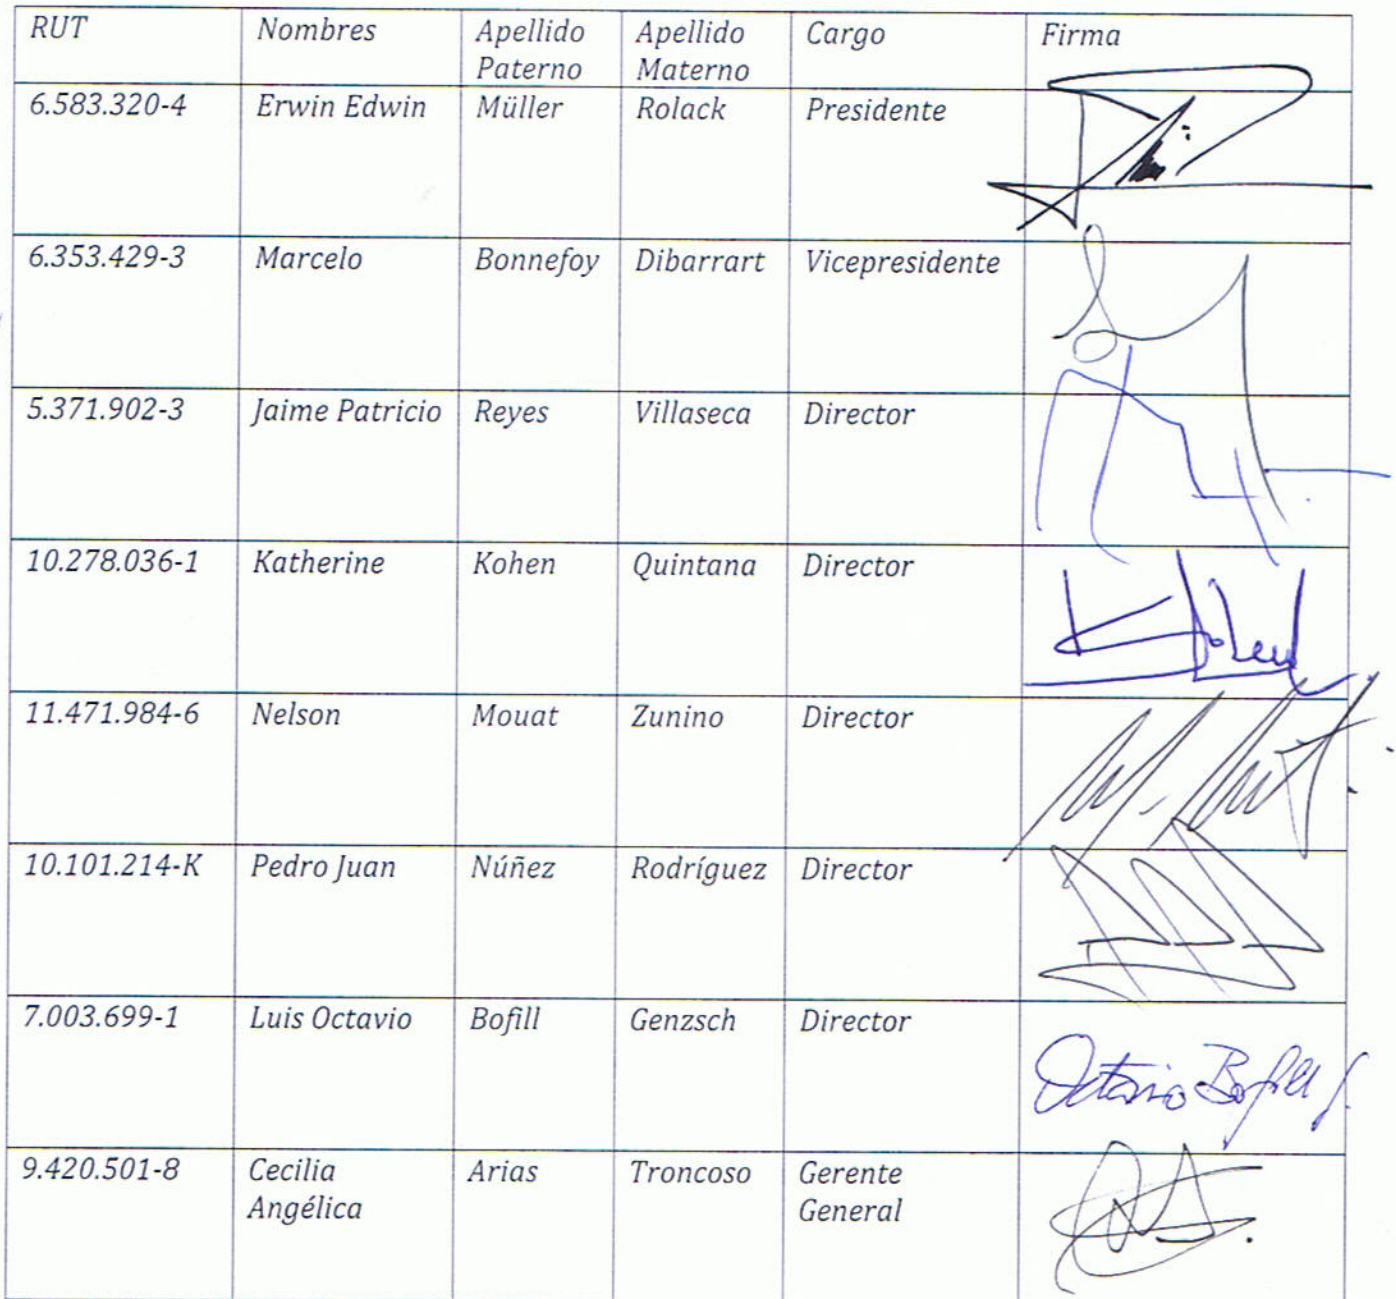 RUT Nombres Apellido Paterno Apellido Materno Cargo Firma
6.583.320-4 Erwin Edwin Müller Rolack Presidente
6.353.429-3 Marcelo Bonnefoy Dibarrart Vicepresidente
5.371.902-3 Jaime Patricio Reyes Villaseca Director
10.278.036-1 Katherine Kohen Quintana Director
11.471.984-6 Nelson Mouat Zunino Director
10.101.214-K Pedro Juan Núñez Rodríguez Director
7.003.699-1 Luis Octavio Bofill Genzsch Director
Octavio Bofill
9.420.501-8 Cecilia Angélica Arias Troncoso Gerente General